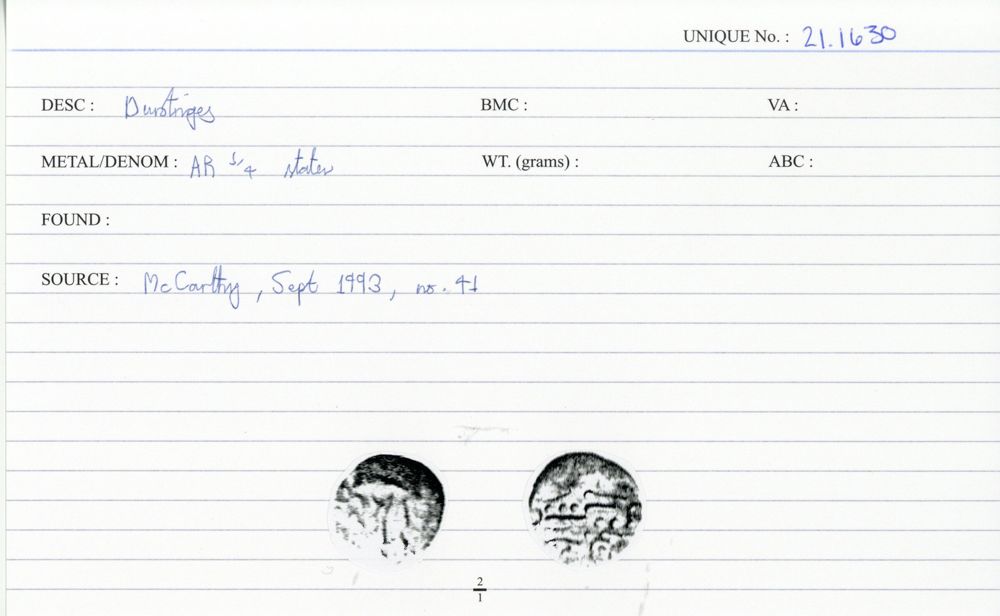 UNIQUE No. : 21.1630
DESC : Durotriges BMC : VA :
METAL/DENOM : AR 1/4 stater WT. (grams) : ABC :
FOUND :
SOURCE : McCarthy, Sept 1993, no. 41
2
1